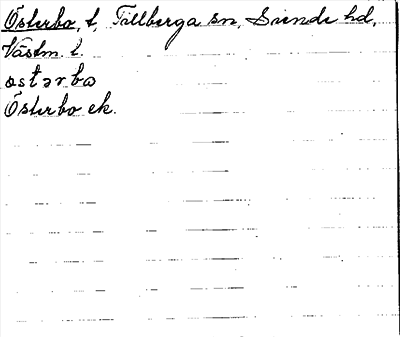 Österbo, t, Tillberga sn, Siende hd,
Västm. l.
østərbω
Österbo ek.